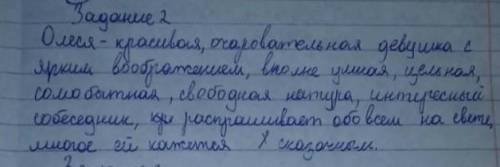 Задание 2
Олеся - красивая, очаровательная девушка с
ярким воображением, вполне умная, цельная,
самобытная, свободная натура, интересный
собеседник, распрашивает обо всем на свете,
многое ей кажется сказочным.